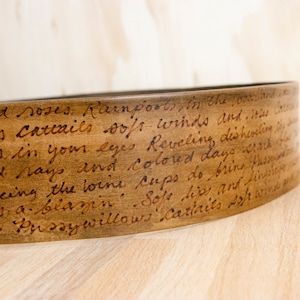 d roses. Rainpools in the
s cattails soft winds and roses
s in your eyes Reveling disheveling
d rays and colored days
cing the wine cups do brim
s a blamin. Soft lies and
Pussywillows Cattails soft winds